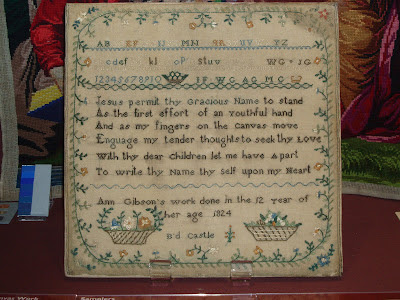 AB EF IJ MN QR UV YZ
cdef kl oP stuv WG + IG
12345678910 IF WG AG MG
Jesus permit thy Gracious Name to stand
As the first effort of an youthful hand
And as my fingers on the Canvas move
Enguage my tender thoughts to seek thy Love
With thy dear Children let me have a part
To write thy Name thy self upon my Heart
Ann Gibson's work done in the 12 year of
her age 1824
B'd Castle
Samplers